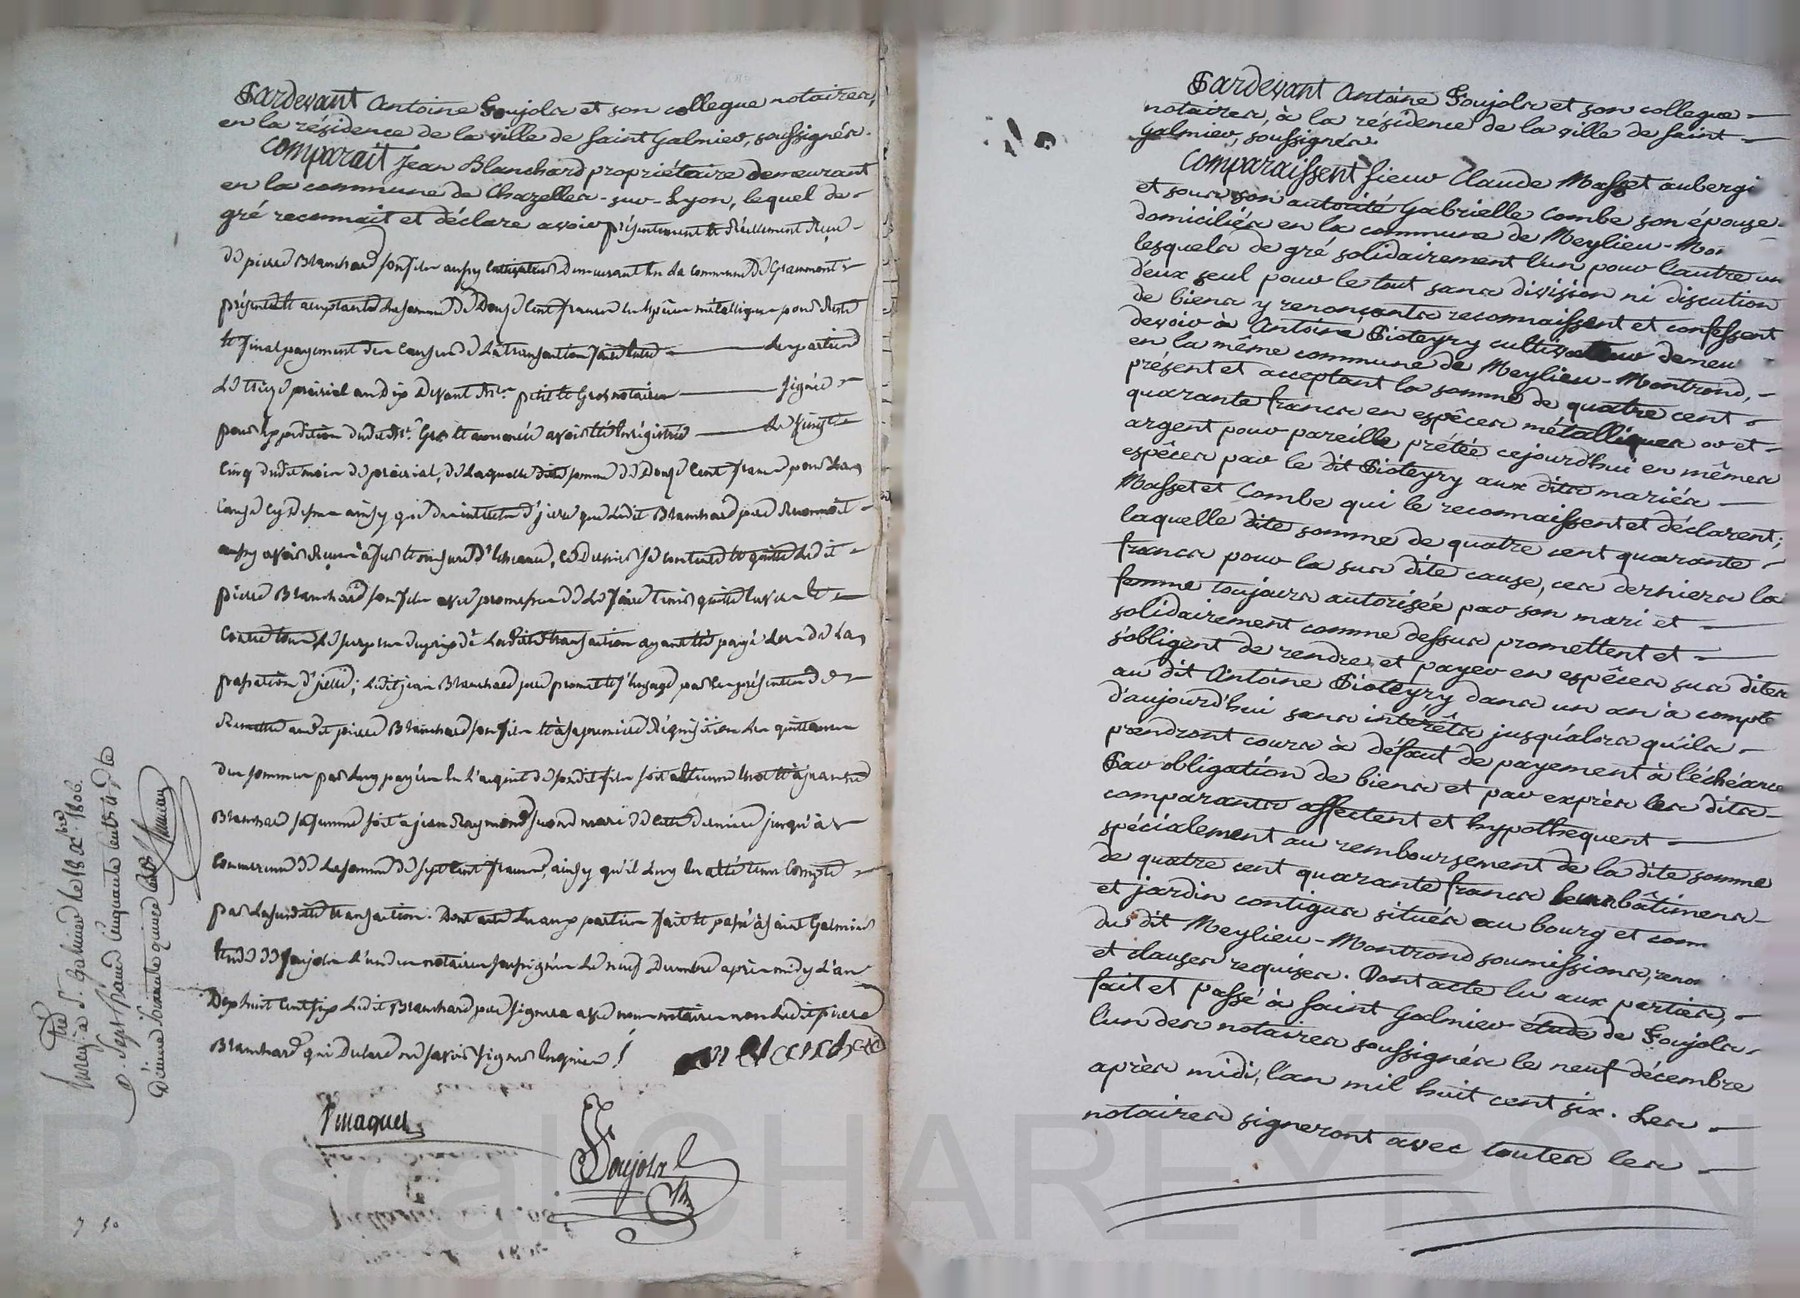 Pardevant Antoine Poujola et son collegue notaires,
en la résidence de la ville de Saint Galmier, soussignés.
Comparait Jean Blanchard propriétaire demeurant
en la commune de Chazelles-sur-Lyon, lequel de
gré reconnait et déclare avoir présentement et réellement Reçu
de pierre Blanchard son fils aussy cultivateur demeurant en la commune de Grammont
présent et acceptant la somme de Douze Cent francs en Espèces métalliques pour Reste
et final payement des Causes de la transaction passée entre les parties
Le treize prairial an Dix Devant Me petit et Gros notaires signée
pour Expedition dudit Me Gros et énoncée avoir été Enregistrée le vingt
Cinq dudit mois de prairial, de Laquelle ditte somme de Douze Cent francs pour la
Cause cy Dessus ainsy que des intérêts d'icelle que Ledit Blanchard père Reconnoit
aussy avoir Reçus à fur et mesure d'Echéance, ce Dernier se contente et quitte Ledit
pierre Blanchard son fils avec promesse de Le faire tenir quitte envers et
Contre tous, le surplus du prix de Laditte transaction ayant été payé Lors de La
passation d'jcelle; Ledit jean Blanchard père promet et s'Engage par les présentes de
Remettre audit pierre Blanchard son fils et à sa première Réquisition Les quittances
des sommes par Luy payées en L'acquit de sondit fils soit à
Blanchard sa femme soit à jean Raymond second mari de cette derniere jusqu'à
Concurrence de La somme de sept Cent francs, ainsy qu'il Luy en a été tenu Compte
par La susditte transaction. Dont acte Lu aux parties fait et passé à Saint Galmier
Etude de Poujola L'un des notaires soussignés Le neuf Decembre après midy L'an
Dix huit Cent six Ledit Blanchard père signera avec nous notaires non Ledit pierre
Blanchard qui Declare ne savoir signer Enquis !
Blanchard
Pmaquet
Poujola
Enregé à St Galmier le 18 Xbre 1806
Reçu Sept francs Cinquante cent
Décime Soixante quinze Centes
7 50
Pardevant Antoine Poujola et son collegue
notaires, à la résidence de la ville de Saint
Galmier, soussignés
Comparaissent sieur Claude Masset aubergi
et sous son autorité Gabrielle Combe son épouse
domiciliés en la commune de Meylieu-Mon
lesquels de gré solidairement l'un pour l'autre un
d'eux seul pour le tout sans division ni discution
de biens y renonçants reconnaissent et confessent
devoir à Antoine Pioteyry cultivateur demeu
en la même commune de Meylieu-Montrond,
présent et acceptant la somme de quatre cent
quarante francs en espèces métalliques or et
argent pour pareille prêtée cejourd'hui en mêmes
espèces par le dit Pioteyry aux dits mariés
Masset et Combe qui le reconnaissent et déclarent;
laquelle dite somme de quatre cent quarante
francs pour la sus dite cause, ces derniers la
femme toujours autorisée par son mari et
solidairement comme dessus promettent et
s'obligent de rendre et payer en espèces sus dites
au dit Antoine Pioteyry dans un an à compte
d'aujourd'hui sans intérêts jusqu'alors qu'ils
prendront cours à défaut de payement à l'échéance
Par obligation de biens et par exprès les dits
comparants affectent et hypothequent
spécialement au remboursement de la dite somme
de quatre cent quarante francs leurs bâtimens
et jardin contigus situés au bourg et com
du dit Meylieu-Montrond soumissions, renon
et clauses requises. Dont acte lu aux parties,
fait et passé à Saint Galmier étude de Poujola
l'un des notaires soussignés le neuf décembre
après midi, l'an mil huit cent six. Les
notaires signeront avec toutes les
Pascal CHAREYRON